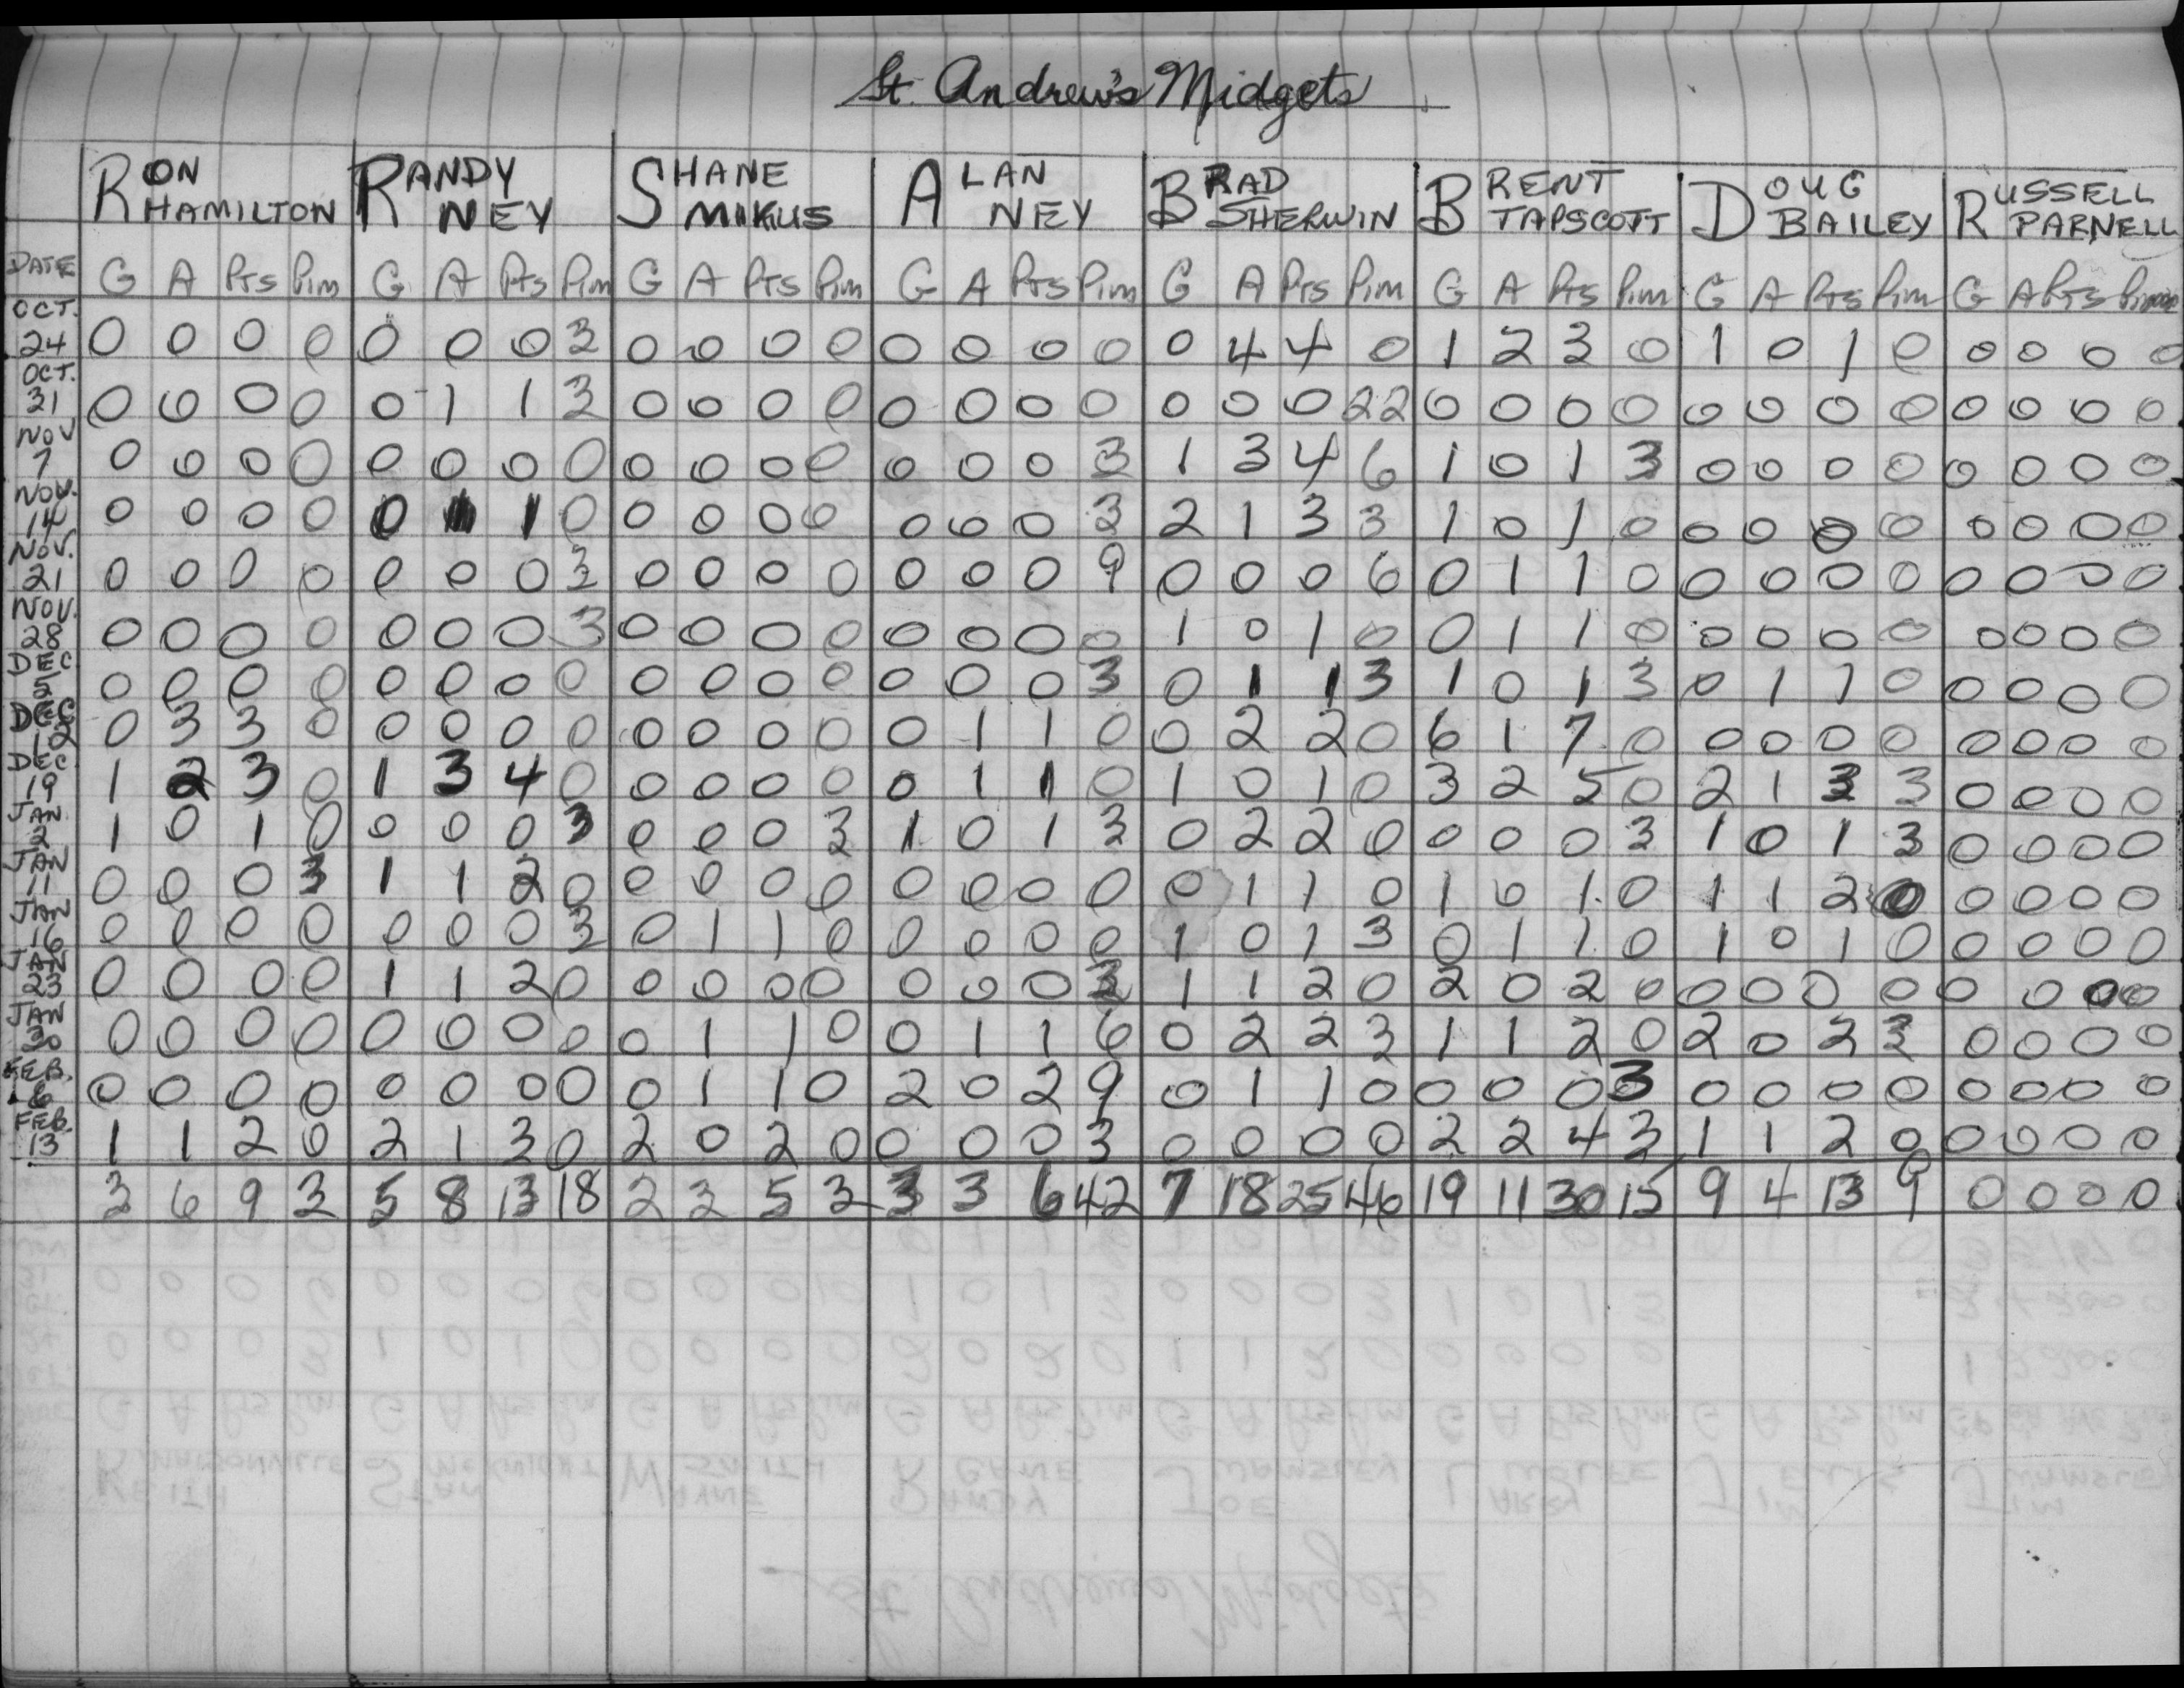 St. Andrew's Midgets
RON HAMILTON RANDY NEY SHANE MIKUS ALAN NEY BRAD SHERWIN BRENT TAPSCOTT DOUG BAILEY RUSSELL PARNELL
DATE G A Pts Pim G A Pts Pim G A Pts Pim G A Pts Pim G A Pts Pim G A Pts Pim G A Pts Pim G A Pts Pim
OCT. 24 0 0 0 0 0 0 0 3 0 0 0 0 0 0 0 0 0 4 4 0 1 2 3 0 1 0 1 0 0 0 0 0
OCT. 31 0 0 0 0 0 1 1 3 0 0 0 0 0 0 0 0 0 0 0 22 0 0 0 0 0 0 0 0 0 0 0 0
NOV 7 0 0 0 0 0 0 0 0 0 0 0 0 0 0 0 3 1 3 4 6 1 0 1 3 0 0 0 0 0 0 0 0
NOV. 14 0 0 0 0 0 1 1 0 0 0 0 0 0 0 0 3 2 1 3 3 1 0 1 0 0 0 0 0 0 0 0 0
NOV. 21 0 0 0 0 0 0 0 3 0 0 0 0 0 0 0 9 0 0 0 6 0 1 1 0 0 0 0 0 0 0 0 0
NOV. 28 0 0 0 0 0 0 0 3 0 0 0 0 0 0 0 0 1 0 1 0 0 1 1 0 0 0 0 0 0 0 0 0
DEC 5 0 0 0 0 0 0 0 0 0 0 0 0 0 0 0 3 0 1 1 3 1 0 1 3 0 1 1 0 0 0 0 0
DEC 12 0 3 3 0 0 0 0 0 0 0 0 0 0 1 1 0 0 2 2 0 6 1 7 0 0 0 0 0 0 0 0 0
DEC. 19 1 2 3 0 1 3 4 0 0 0 0 0 0 1 1 0 1 0 1 0 3 2 5 0 2 1 3 3 0 0 0 0
JAN 2 1 0 1 0 0 0 0 3 0 0 0 3 1 0 1 3 0 2 2 0 0 0 0 3 1 0 1 3 0 0 0 0
JAN 11 0 0 0 3 1 1 2 0 0 0 0 0 0 0 0 0 0 1 1 0 1 0 1 0 1 1 2 0 0 0 0 0
JAN 16 0 0 0 0 0 0 0 3 0 1 1 0 0 0 0 0 1 0 1 3 0 1 1 0 1 0 1 0 0 0 0 0
JAN 23 0 0 0 0 1 1 2 0 0 0 0 0 0 0 0 3 1 1 2 0 2 0 2 0 0 0 0 0 0 0 0 0
JAN 30 0 0 0 0 0 0 0 0 0 1 1 0 0 1 1 6 0 2 2 3 1 1 2 0 2 0 2 3 0 0 0 0
FEB. 6 0 0 0 0 0 0 0 0 0 1 1 0 2 0 2 9 0 1 1 0 0 0 0 3 0 0 0 0 0 0 0 0
FEB. 13 1 1 2 0 2 1 3 0 2 0 2 0 0 0 0 3 0 0 0 0 2 2 4 3 1 1 2 0 0 0 0 0
3 6 9 3 5 8 13 18 2 3 5 3 3 3 6 42 7 18 25 46 19 11 30 15 9 4 13 9 0 0 0 0